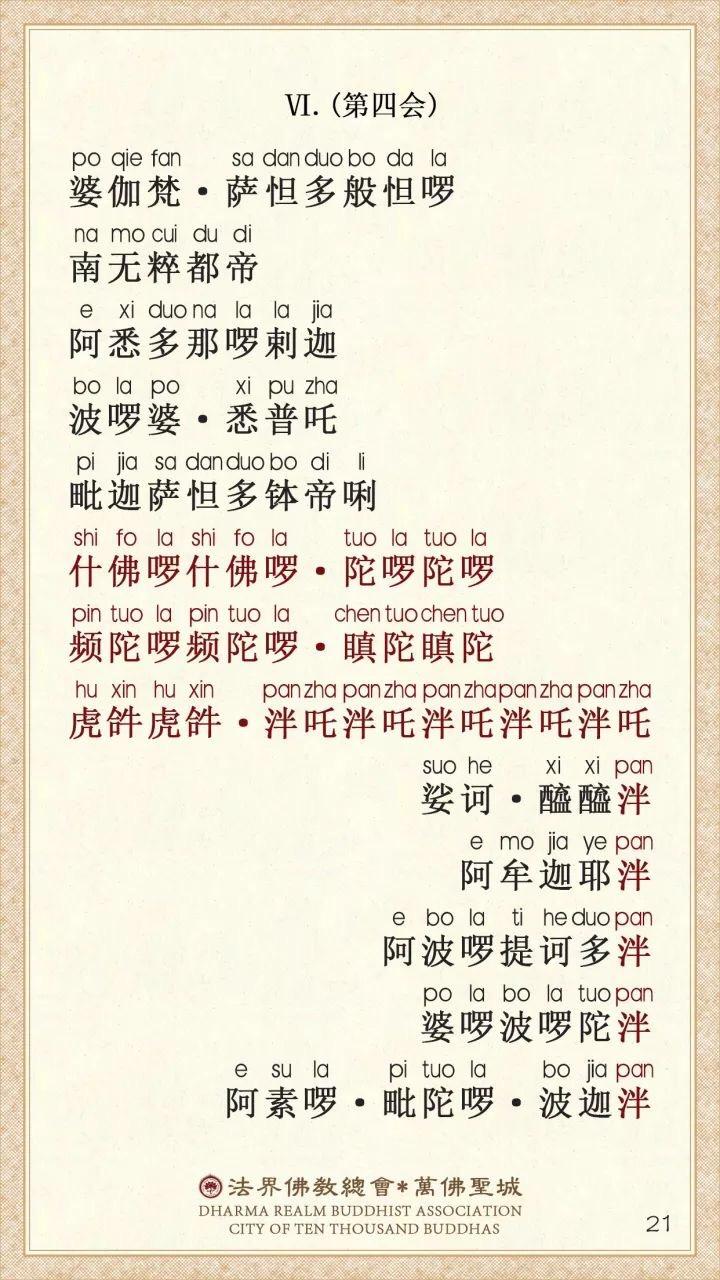 VI.（第四会）
po qie fan sa dan duo bo da la
婆伽梵・萨怛多般怛啰
na mo cui du di
南无粹都帝
e xi duo na la la jia
阿悉多那啰剌迦
bo la po xi pu zha
波啰婆・悉普吒
pi jia sa dan duo bo di li
毗迦萨怛多钵帝唎
shi fo la shi fo la tuo la tuo la
什佛啰什佛啰・陀啰陀啰
pin tuo la pin tuo la chen tuo chen tuo
频陀啰频陀啰・瞋陀瞋陀
hu xin hu xin pan zha pan zha pan zha pan zha pan zha
虎𤙖虎𤙖・泮吒泮吒泮吒泮吒泮吒
suo he xi xi pan
娑诃・醯醯泮
e mo jia ye pan
阿牟迦耶泮
e bo la ti he duo pan
阿波啰提诃多泮
po la bo la tuo pan
婆啰波啰陀泮
e su la pi tuo la bo jia pan
阿素啰・毗陀啰・波迦泮
法界佛教總會*萬佛聖城
DHARMA REALM BUDDHIST ASSOCIATION
CITY OF TEN THOUSAND BUDDHAS
21